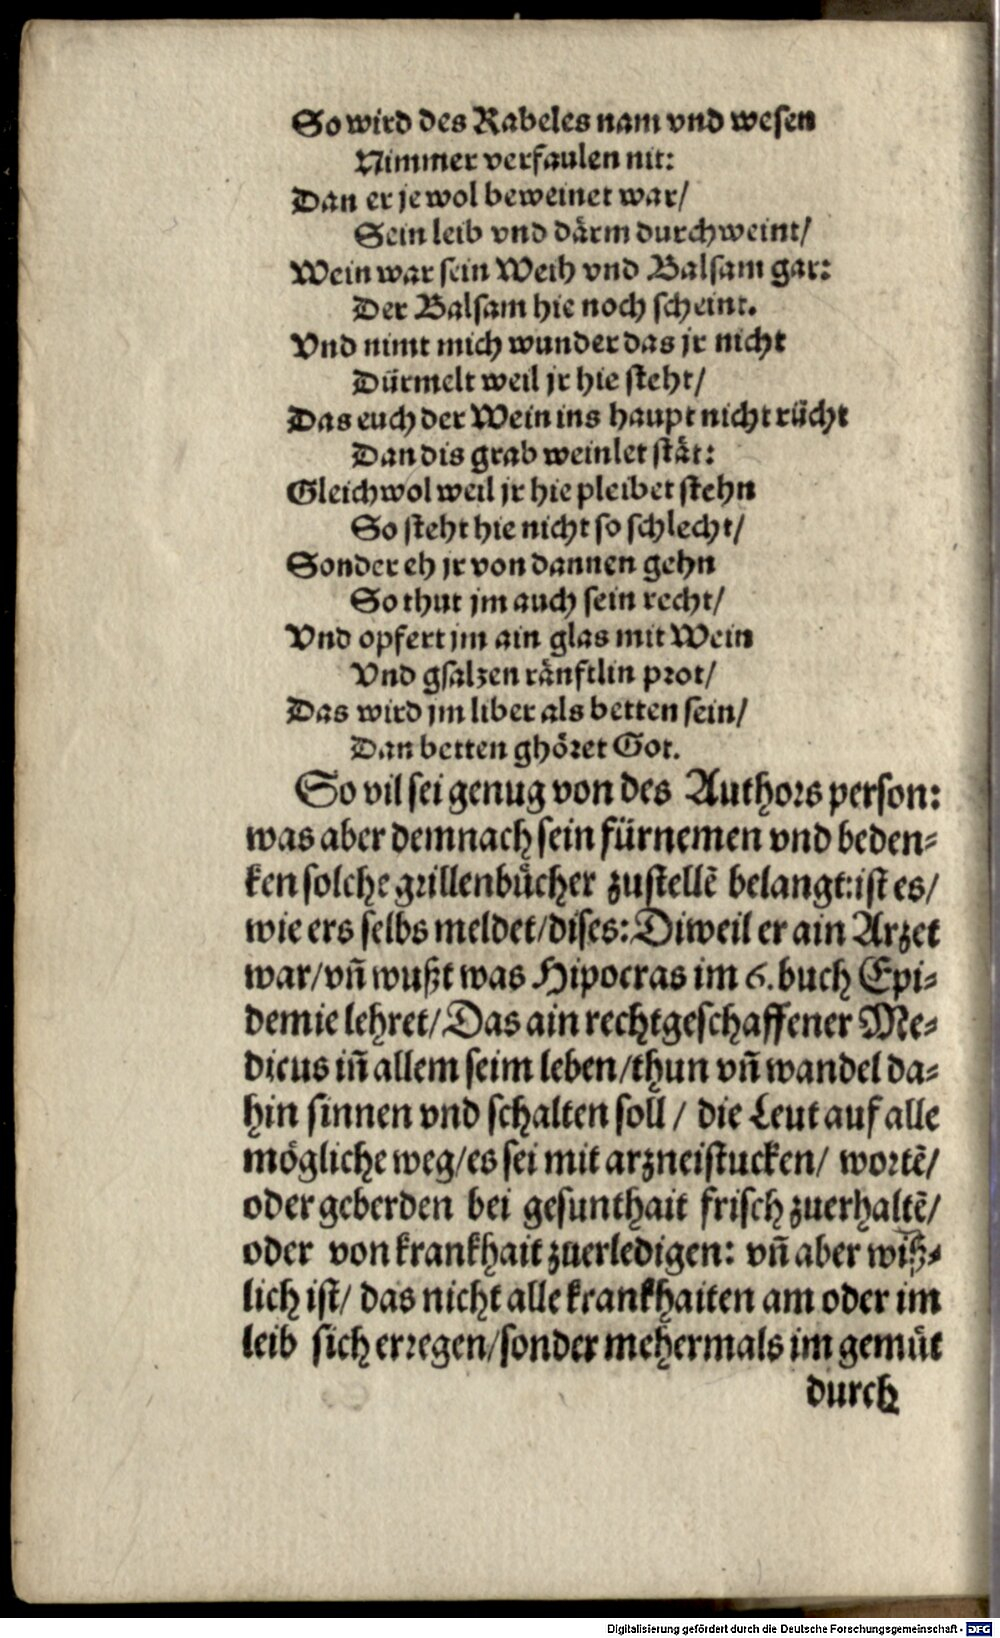 So wird des Rabeles nam vnd wesen
Nimmer verfaulen nit:
Dan er je wol beweinet war/
Sein leib vnd därm durchweint/
Wein war sein Weih vnd Balsam gar:
Der Balsam hie noch scheint.
Vnd nimt mich wunder das jr nicht
Dürmelt weil jr hie steht/
Das euch der Wein ins haupt nicht rücht
Dan dis grab weinlet stät:
Gleichwol weil jr hie pleibet stehn
So steht hie nicht so schlecht/
Sonder eh jr von dannen gehn
So thut jm auch sein recht/
Vnd opfert jm ain glas mit Wein
Vnd gsalzen ränftlin prot/
Das wird jm liber als betten sein/
Dan betten ghöret Got.
So vil sei genug von des Authors person:
was aber demnach sein fürnemen vnd beden-
ken solche grillenbücher zustellẽ belangt: ist es/
wie ers selbs meldet/dises: Diweil er ain Arzet
war/vñ wußt was Hipocras im 6. buch Epi-
demie lehret/Das ain rechtgeschaffener Me-
dicus iñ allem seim leben/thun vñ wandel da-
hin sinnen vnd schalten soll / die Leut auf alle
mögliche weg/es sei mit arzneistucken/ wortẽ/
oder geberden bei gesunthait frisch zuerhaltẽ/
oder von krankhait zuerledigen: vñ aber wiß-
lich ist/ das nicht alle krankhaiten am oder im
leib sich erregen/sonder mehermals im gemüt
durch
Digitalisierung gefördert durch die Deutsche Forschungsgemeinschaft - DFG